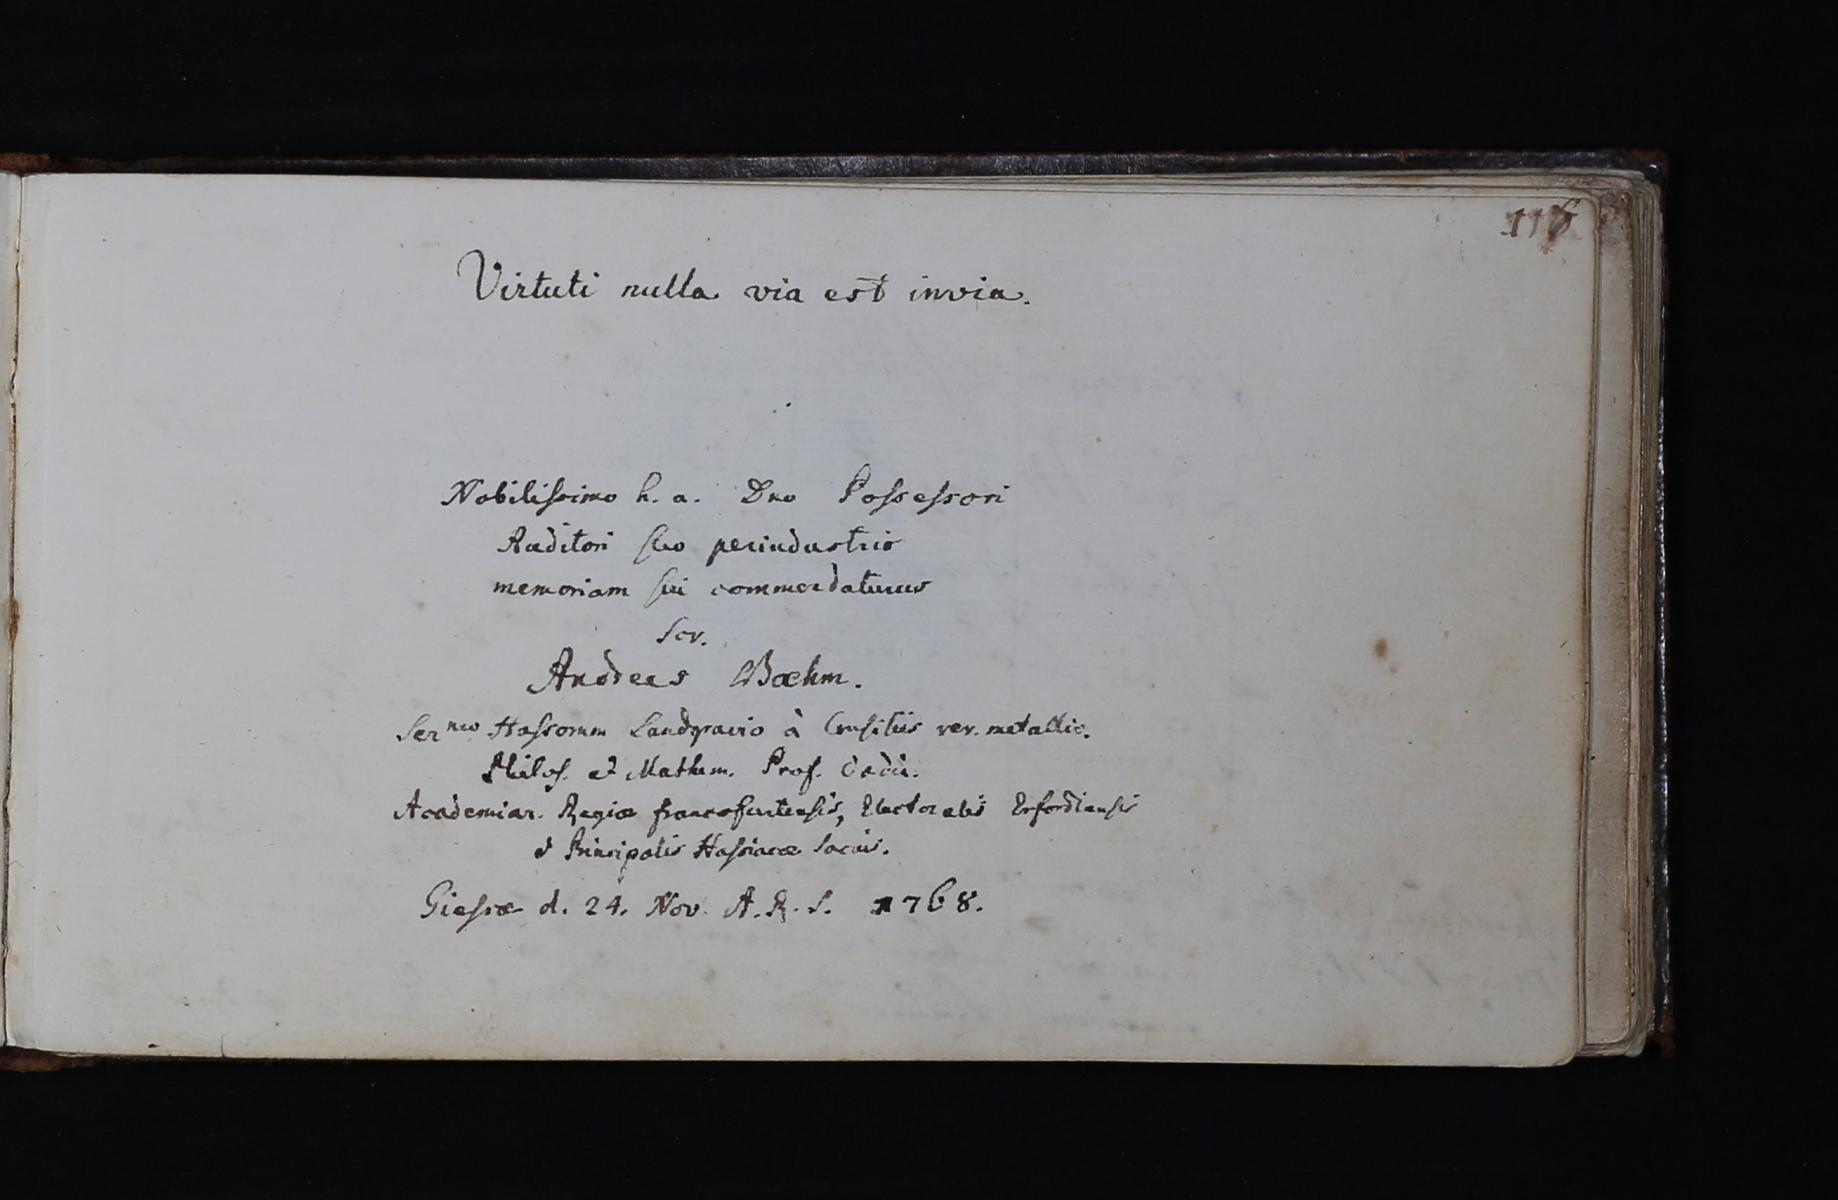 116
Virtuti nulla via est invia.
Nobilissimo h. a. Dno Possessori
Auditori suo perindustrio
memoriam sui commendaturus
Scr.
Andreas Bœhm.
Ser nmo Hassorum Landgravio à Consiliis rer. metallic.
Philos. et Mathem. Prof. Ordin.
Academiar. Regiæ francofurtensis, Electoralis Erfordiensis
& Principalis Hassiacæ Socius.
Giessæ d. 24. Nov. A. R. S. 1768.